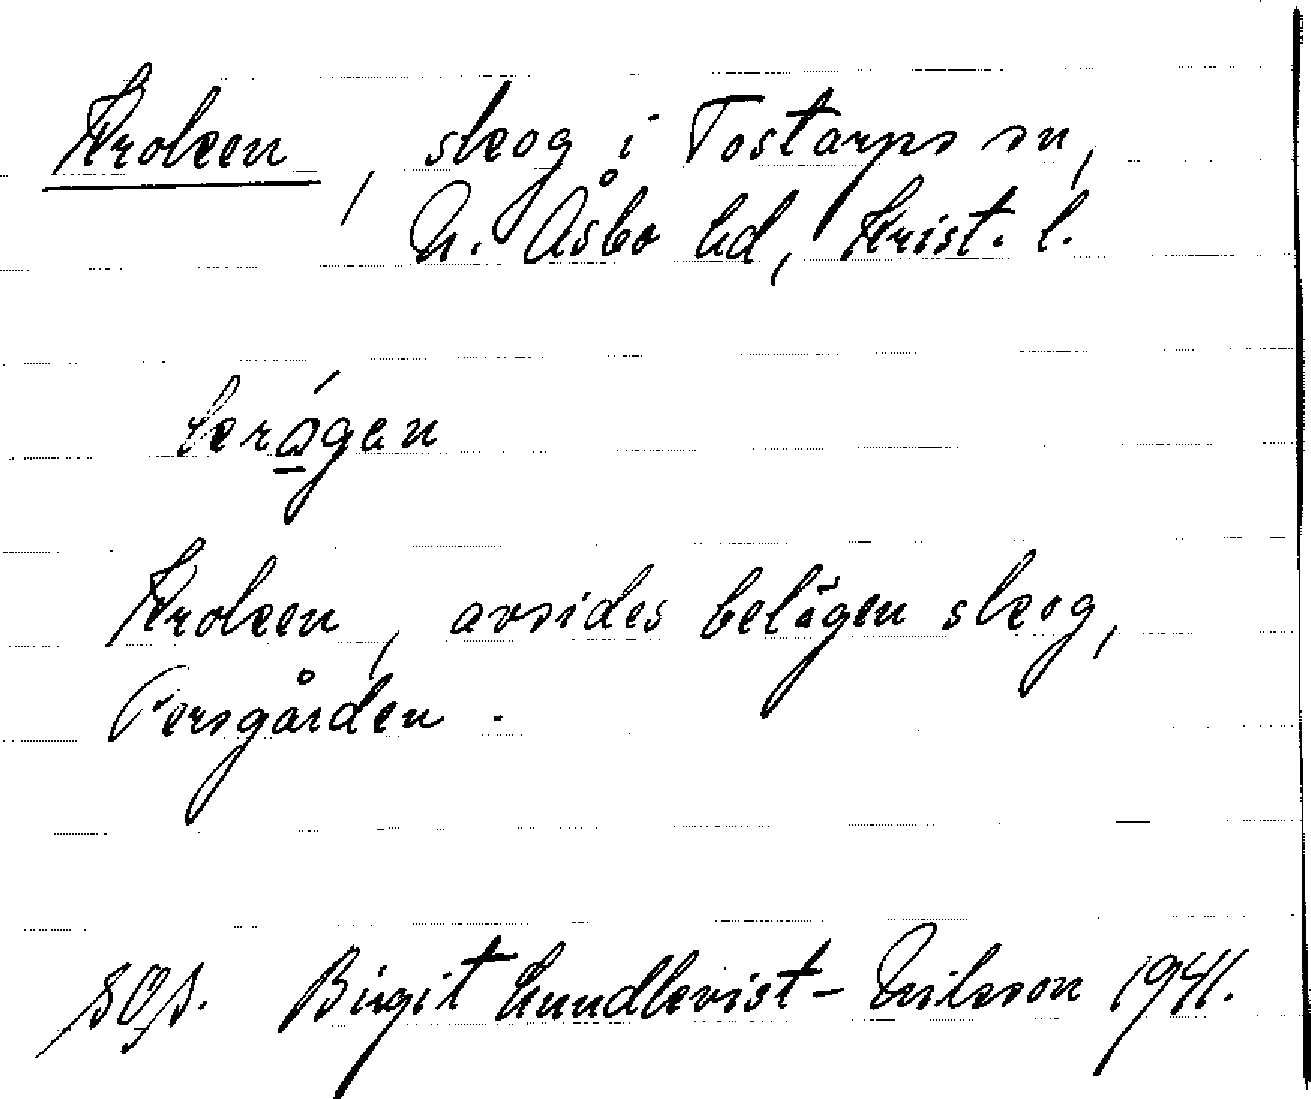 Kroken, skog i Tostarps sn,
N. Åsbo hd, Krist. l.
krǻgen
Kroken, avsides belägen skog,
Persgården.
Birgit Lundkvist-Nilsson 1941.